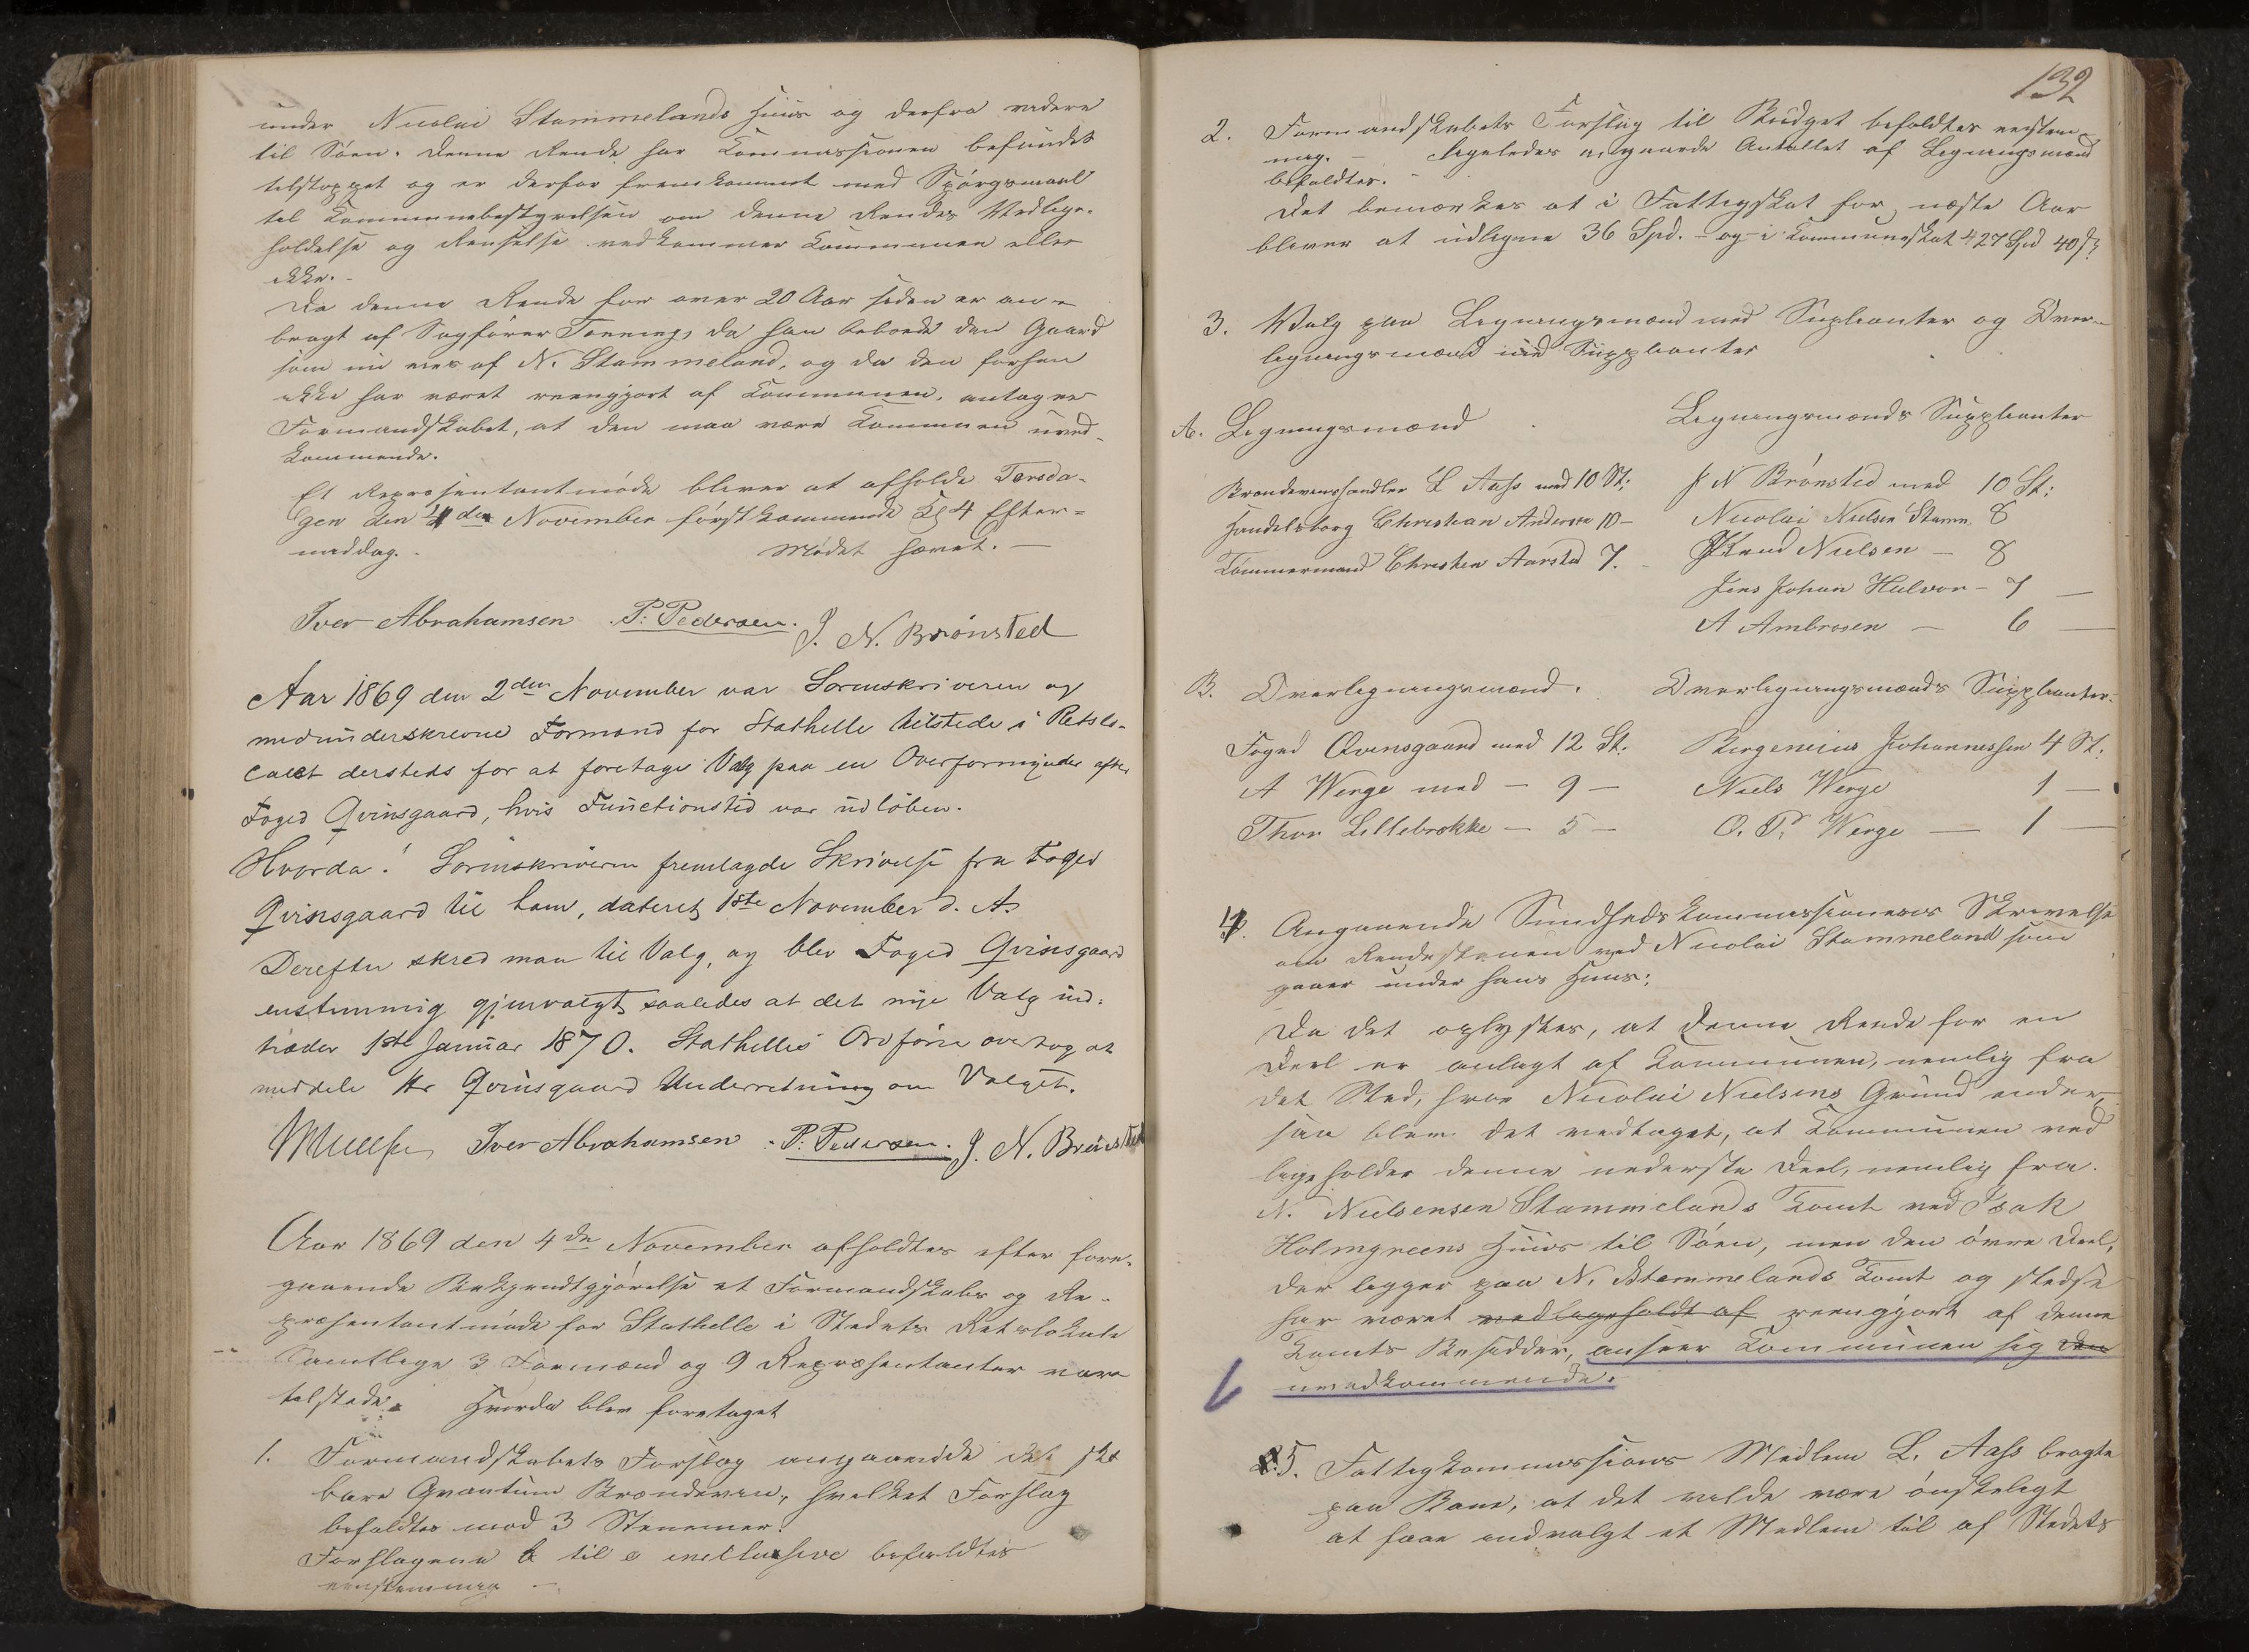 under Nicolai Stammelands Huus og derfra videre
til Söen. Denne Rende har Commissionen befundet
tilstoppet og er derfor fremkommet med Spörgsmaal
til Communebestyrelsen om denne Rendes Vedlige-
holdelse og Renselse vedkommer Communen eller
ikke. -
Da denne Rende for over 20 Aar siden er an-
bragt af Sagförer Tønning, da han beboede den Gaard
som nu eies af N. Stammeland, og da den forhen
ikke har været reengjort af Communen, antager
Formandskabet, at den maa være Communen uved-
kommende.
Et Repræsentantmöde bliver at afholde Torsda-
gen den 4 de November förstkommende Kl 4 Efter-
middag. - Mödet hævet. -
Iver Abrahamsen P. Pedersen. J. N. Brönsted
Aar 1869 den 2den November var Sorenskriveren og
medunderskrevne Formænd for Stathelle tilstede i Retslo-
calet dersteds for at foretage Valg paa en Overformynder efter
Foged Qvinsgaard, hvis Functionstid var udlöben.
Hvorda! Sorenskriveren fremlagde Skrivelse fra Foged
Qvinsgaard til ham, dateret 1ste November d. A.
Derefter skred man til Valg, og blev Foged Qvinsgaard
enstemmig gjenvalgt, saaledes at det nye Valg ind-
træder 1ste Januar 1870. Stathelles Ordförer overtog at
meddele Hr Qvinsgaard Underretning om Valget.
Iver Abrahamsen P. Pedersen. J. N. Brönsted
Aar 1869 den 4de November afholdtes efter fore-
gaaende Bekjendtgjörelse et Formandskabs og Re-
præsentantmöde for Stathelle i Stedets Retslokale
Samtlige 3 Formænd og 9 Repræsentanter vare
tilstede. Hvorda blev foretaget
1. Formandskabets Forslag angaaende det skat
bare Qvantum Brændeviin, hvilket Forslag
bifaldtes mod 3 Stemmer.
Forslagene b til e inclusive bifaldtes
eenstemmig -
132
2. Formandskabets Forslag til Budget bifaldtes eenstem-
mig. - ligeledes angaaende Antallet af Ligningsmænd
bifaldtes. -
Det bemærkes at i Fattigskat for næste Aar
bliver at udligne 36 Spd. - og i Communeskat 427 Spd 40 ß
3. Valg paa Ligningsmænd med Suplianter og Over-
ligningsmænd med Supplianter
A. Ligningsmænd Ligningsmænds Supplianter
Brændeviinshandler L Aass med 10 St: J N Brönsted med 10 St:
Handelsborg Christian Andersen 10 - Nicolai Nielsen Stamm. 8
Tömmermand Christen Aarstad 7. - Knud Nielsen - 8
Jens Johan Halvor - 7 -
A Ambrosen - 6 -
B. Overligningsmænd. Overligningsmænds Supplianter.
Foged Qvinsgaard med 12 St. Birgenius Johannessen 4 St:
A Werge med - 9 - Niels Werge 1 -
Thor Lillebrække - 5 - O. P. Werge - 1 -
4. Angaaende Sundhedskommissionens Skrivelse
om Rendestenen ved Nicolai Stammeland som
gaaer under hans Huus;
Da det oplystes, at denne Rende for en
Deel er anlagt af Communen, nemlig fra
det Sted, hvor Nicolai Nielsens Grund ender,
saa blev det vedtaget, at Communen ved
ligeholder denne nederste Deel, nemlig fra
N. Nielsensen Stammelands Tomt ved Isak
Holmgreens Huus til Söen, men den övre Deel,
der ligger paa N. Stammelands Tomt og stedse
har været vedligeholdt af reengjort af denne
Tomts Besidder, anseer Communen sig den
uvedkommende.
5. Fattigkommissions Medlem L. Aass bragte
paa Bane, at det vilde være önskeligt
at faae indvalgt et Medlem til af Stedets